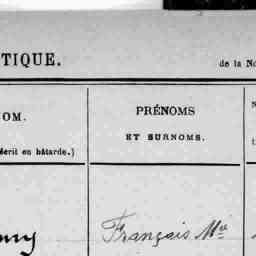 TIQUE.
de la No
OM.
écrit en bâtarde.)
PRÉNOMS
ET SURNOMS.
N
François Mie